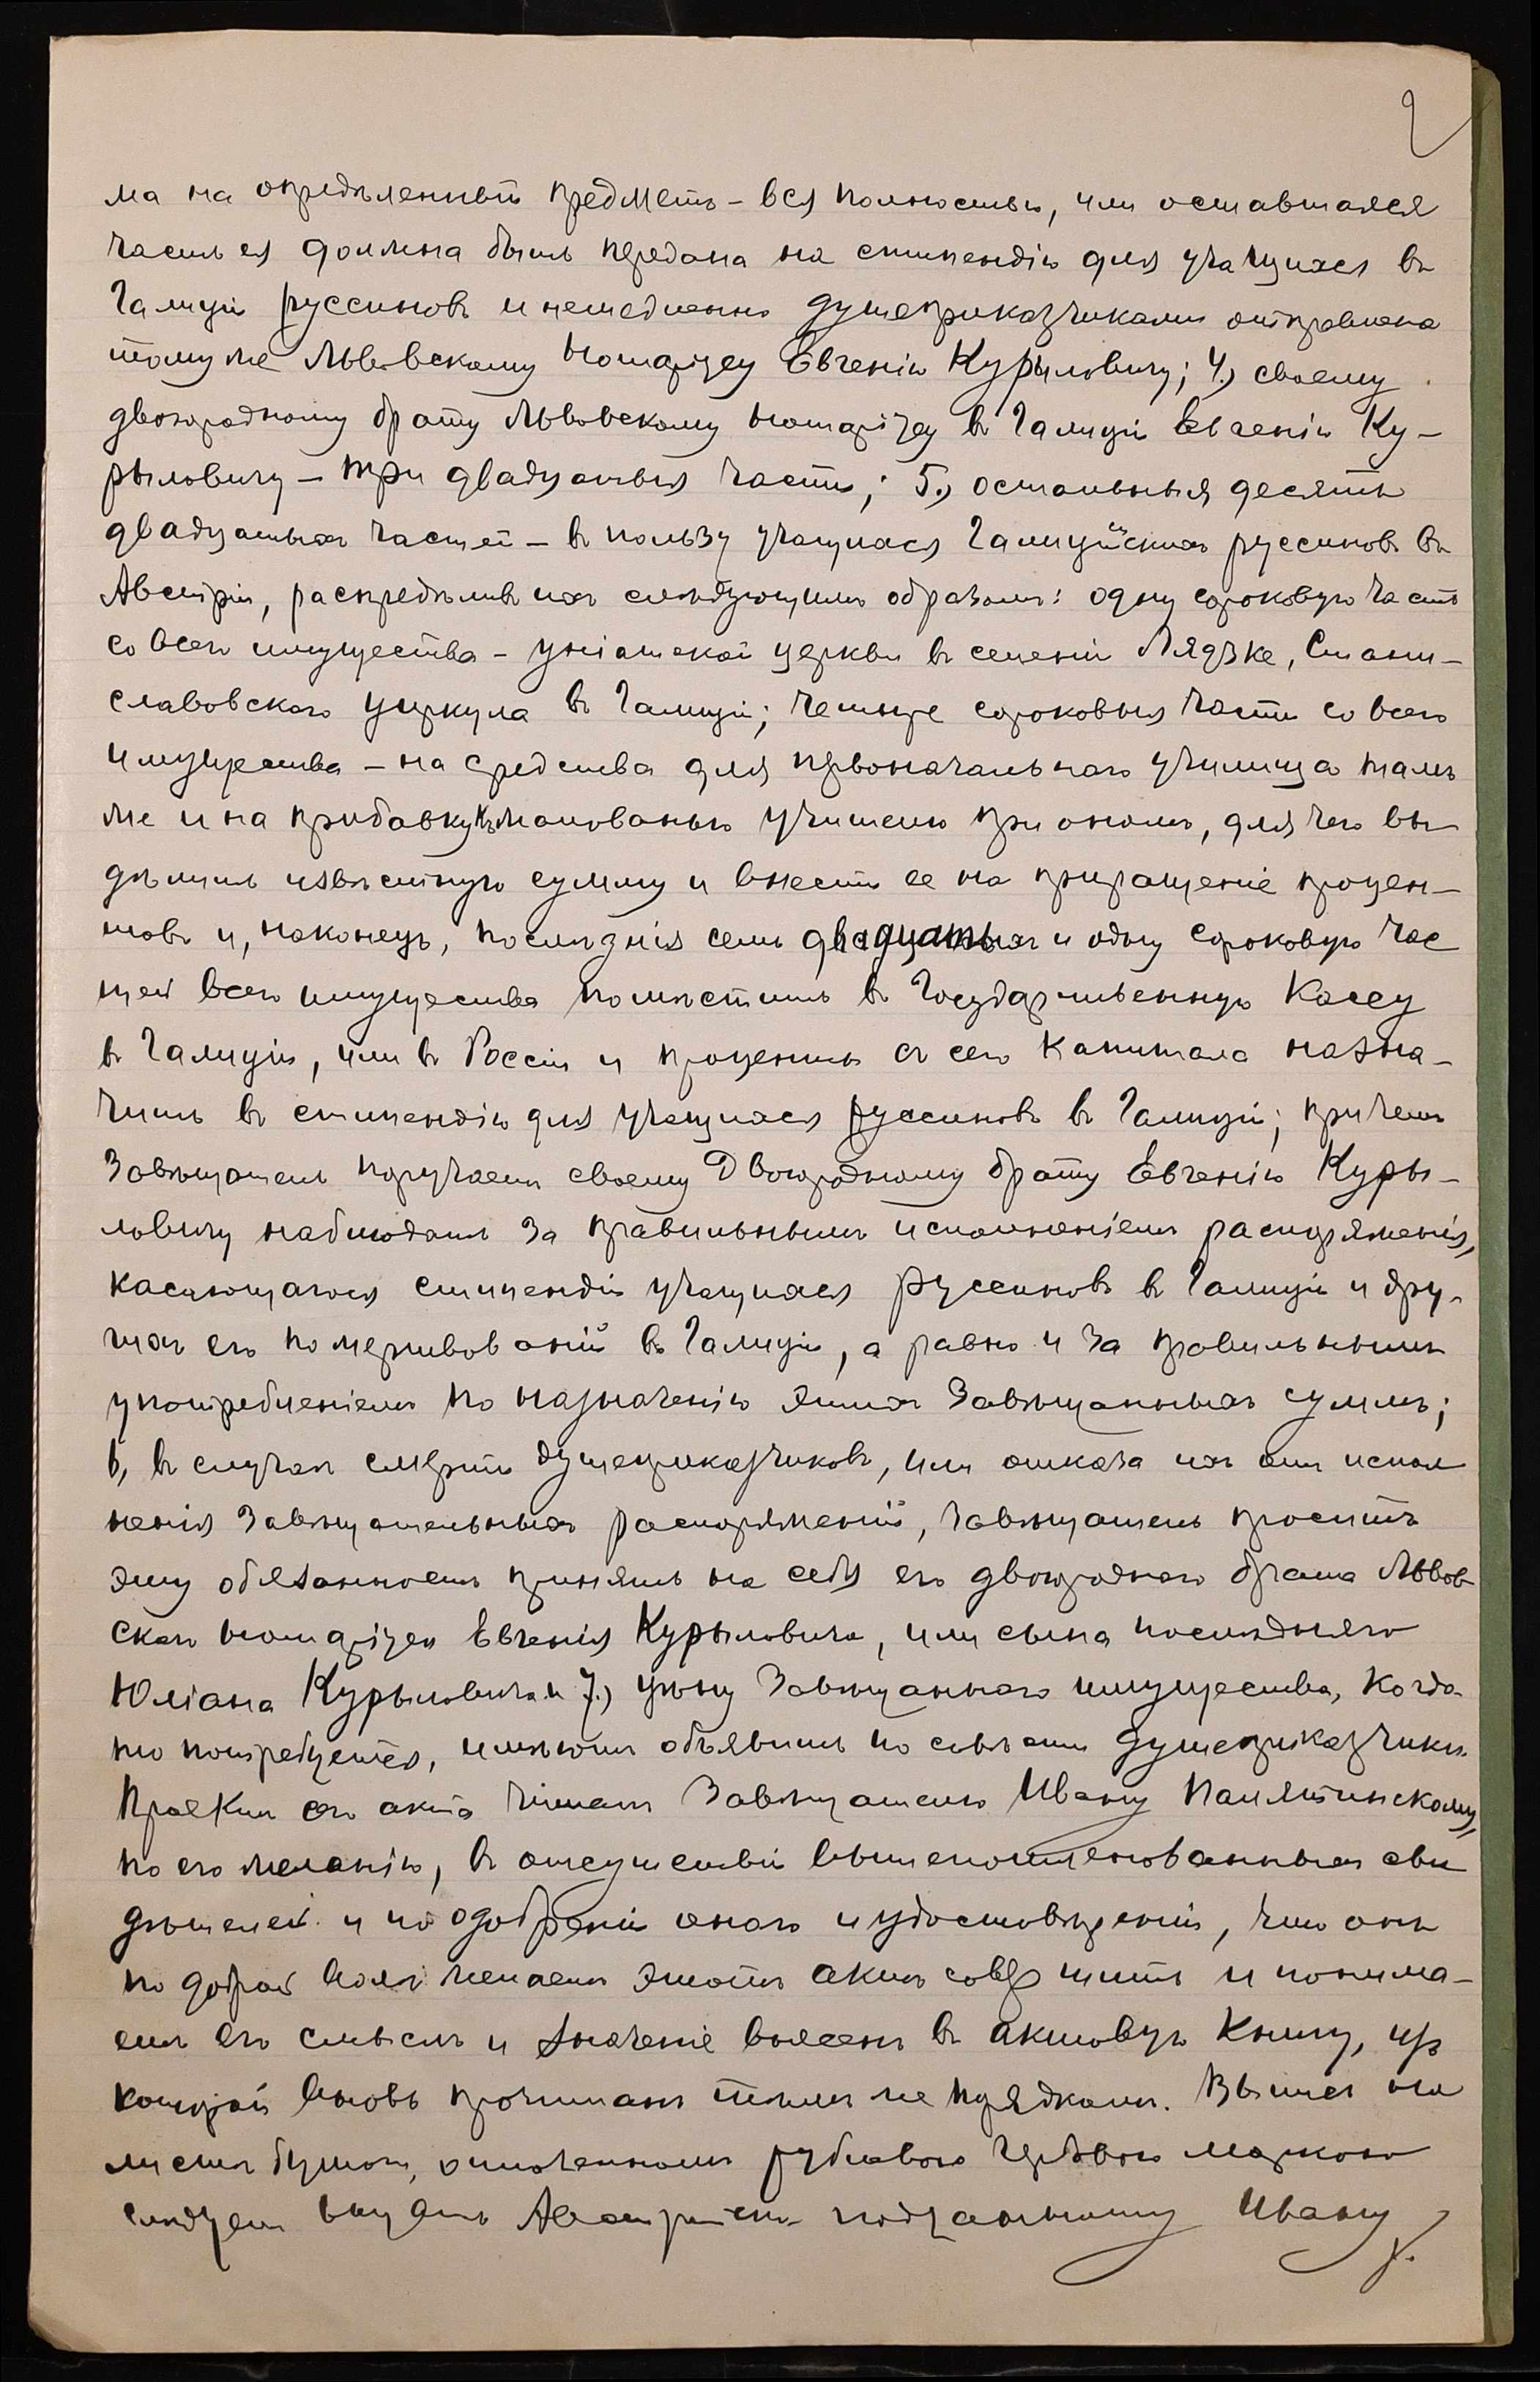 2
ма на опредѣленный предметъ - вся полностью, или оставшаяся
часть ея должна быть передана на стипендію для учащихся въ
Галиціи руссиновъ и немедленно душеприказчиками отправлена
тому же Львовскому Нотаріусу Евгенію Курыловичу; 4.) своему
двоюродному брату Львовскому Нотаріусу въ Галиціи Евгенію Ку-
рыловичу - три двадцатыя части; 5.) остальныя десять
двадцатыхъ частей - въ пользу учащихся Галиційскихъ руссиновъ въ
Австріи, распредѣливъ ихъ слѣдующимъ образомъ: одну сороковую часть
со всего имущества - уніатской церкви въ селеніи Лядзке, Стани-
славовского циркула въ Галиціи; четыре сороковыя части со всего
имущества - на средства для первоначальнаго училища тамъ
же и на прибавку къ жалованью учителю при ономъ, для чего вы-
дѣлить извѣстную сумму и внести ее на приращеніе процен-
товъ и, наконецъ, послѣднія семь двадцатыхъ и одну сороковую час
тей всего имущества помѣстить въ Государственную Кассу
въ Галиціи, или въ Россіи и проценты съ сего капитала назна-
чить въ стипендію для учащихся руссиновъ въ Галиціи; при чемъ
Завѣщатель поручаетъ своему Двоюродному брату Евгенію Куры-
ловичу наблюдать за правильнымъ исполненіемъ распоряженія,
касающагося стипендіи учащихся руссиновъ въ Галиціи и дру-
гихъ его пожертвованій въ Галиціи, а равно и за правильнымъ
употребленіемъ по назначенію этихъ Завѣщанныхъ суммъ;
6, въ случаѣ смерти душеприказчиковъ, или отказа ихъ отъ испол
ненія Завѣщательныхъ распоряженій, Завѣщатель проситъ
эту обязанность принять на себя его двоюроднаго брата Львов
скаго Нотаріуса Евгенія Курыловича, или сына послѣдняго
Юліана Курыловича и 7.) цѣну Завѣщаннаго имущества, когда
то потребуется, имѣютъ объявить по совѣсти душеприказчики.
Проектъ сего акта читанъ Завѣщателю Ивану Памятинскому,
по его желанію, въ отсутствіи вышепоименованныхъ сви
дѣтелей и по одобреніи онаго и удостовѣреніи, что онъ
по доброй волѣ желаетъ этотъ актъ совершить и понима-
етъ его смыслъ и значеніе внесенъ въ актовую книгу, изъ
которой вновь прочитанъ тѣмъ же порядкомъ. Выпись на
листѣ бумаги, оплаченномъ рублевою гербовою маркою
слѣдуетъ выдать Австрійско-подданному Ивану